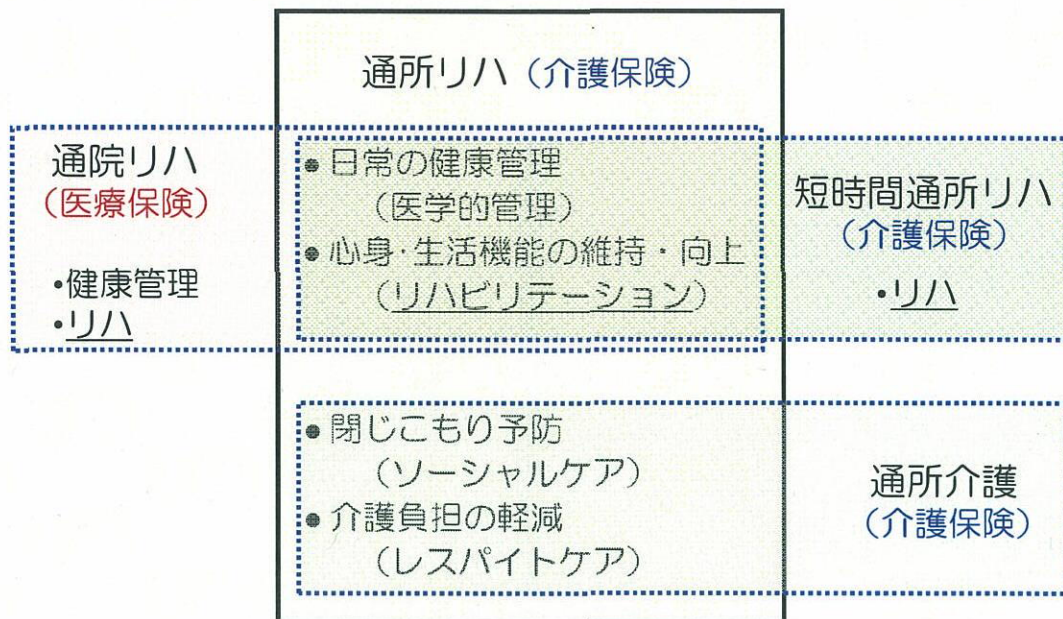 通所リハ（介護保険）
通院リハ
（医療保険）
•健康管理
•リハ
● 日常の健康管理
（医学的管理）
● 心身・生活機能の維持・向上
（リハビリテーション）
短時間通所リハ
（介護保険）
•リハ
● 閉じこもり予防
（ソーシャルケア）
● 介護負担の軽減
（レスパイトケア）
通所介護
（介護保険）